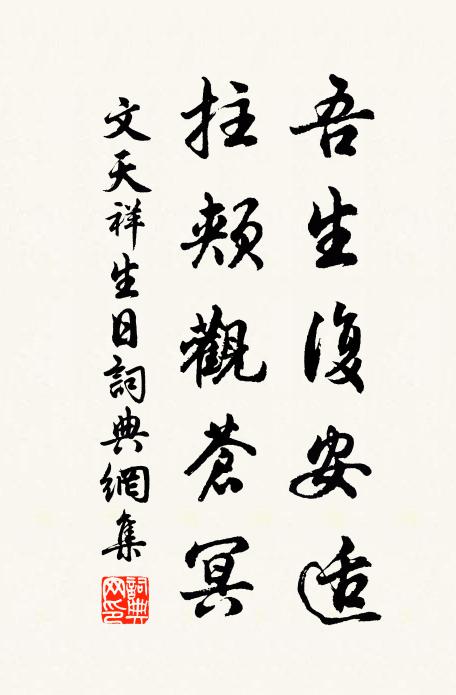 吾生復安适
拄頰觀蒼冥
文天祥生日詞典網集
詞典網印